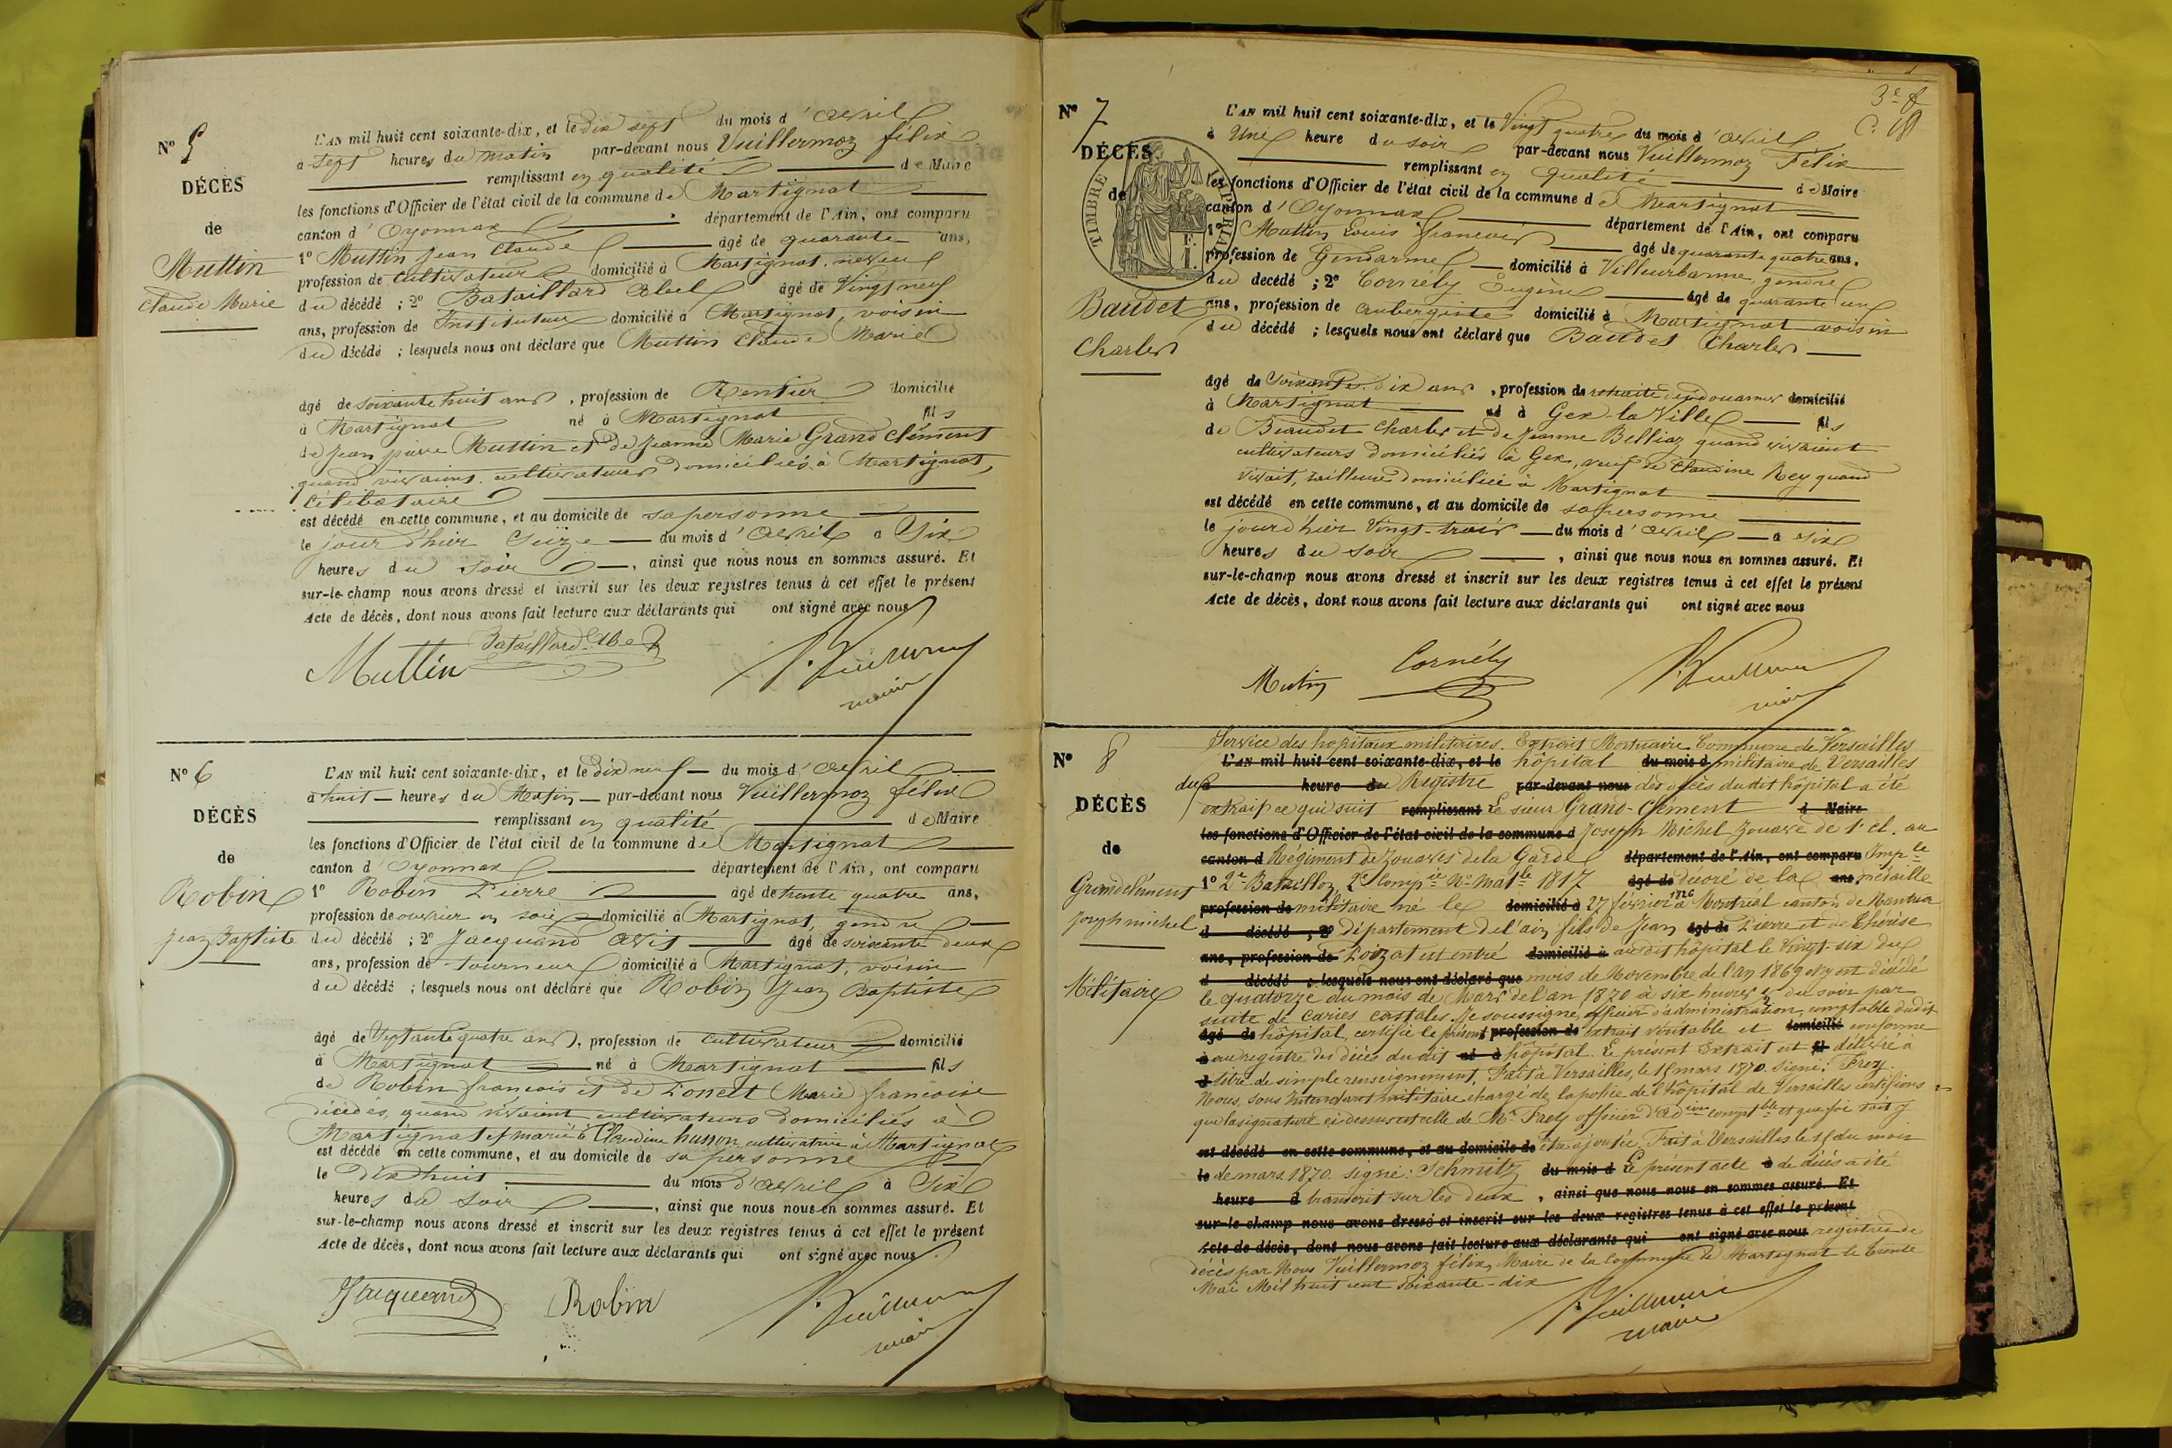 N° 5
DÉCÈS
de
Muttin
Claude Marie
L'AN mil huit cent soixante-dix, et le dix sept du mois d'avril
à sept heures du matin par-devant nous Vuillermoz félix
remplissant en qualité de Maire
les fonctions d'Officier de l'état civil de la commune de Martignat
canton d'Oyonnax département de l'Ain, ont comparu
1° Muttin Jean Claude âgé de quarante ans,
profession de cultivateur domicilié à Martignat, neveu
du décédé ; 2° Bataillard Abel âgé de Vingt neuf
ans, profession de Instituteur domicilié à Martignat, voisin
du décédé ; lesquels nous ont déclaré que Muttin Claude Marie
âgé de soixante huit ans, profession de Rentier domicilié
à Martignat né à Martignat fils
de Jean pierre Muttin et de Jeanne Marie Grand clément
quand vivaient cultivateurs domiciliés à Martignat,
célibataire
est décédé en cette commune, et au domicile de sa personne
le jour d'hier Seize du mois d'avril à Six
heures du Soir, ainsi que nous nous en sommes assuré. Et
sur-le-champ nous avons dressé et inscrit sur les deux registres tenus à cet effet le présent
Acte de décès, dont nous avons fait lecture aux déclarants qui ont signé avec nous
Muttin Bataillard Abel F. Vuillermoz
maire
N° 6
DÉCÈS
de
Robin
Jean Baptiste
L'AN mil huit cent soixante-dix, et le dix neuf du mois d'avril
à huit heures du Matin par-devant nous Vuillermoz félix
remplissant en qualité de Maire
les fonctions d'Officier de l'état civil de la commune de Martignat
canton d'Oyonnax département de l'Ain, ont comparu
1° Robin Pierre âgé de trente quatre ans,
profession de ouvrier en soie domicilié à Martignat, gendre
du décédé ; 2° Jacquand Avit âgé de soixante deux
ans, profession de tourneur domicilié à Martignat, voisin
du décédé ; lesquels nous ont déclaré que Robin Jean Baptiste
âgé de Septante quatre ans, profession de cultivateur domicilié
à Martignat né à Martignat fils
de Robin françois et de Poncet Marie françoise
décédés, quand vivaient cultivateurs domiciliés à
Martignat et marié à Claudine husson cultivatrice à Martignat
est décédé en cette commune, et au domicile de sa personne
le Dix huit du mois d'avril à Six
heures du Soir, ainsi que nous nous en sommes assuré. Et
sur-le-champ nous avons dressé et inscrit sur les deux registres tenus à cet effet le présent
Acte de décès, dont nous avons fait lecture aux déclarants qui ont signé avec nous.
Jacquand Robin F. Vuillermoz
maire
3e f
N° 7
DÉCÈS
de
TIMBRE IMPÉRIAL
Baudet
Charles
L'AN mil huit cent soixante-dix, et le Vingt quatre du mois d'avril
à Une heure du soir par-devant nous Vuillermoz Félix
remplissant en qualité de Maire
les fonctions d'Officier de l'état civil de la commune de Martignat
canton d'Oyonnax département de l'Ain, ont comparu
1° Muttin Louis françois âgé de quarante quatre ans,
profession de Gendarme domicilié à Villeurbanne, gendre
du décédé ; 2° Cornély Eugène âgé de quarante un
ans, profession de aubergiste domicilié à Martignat voisin
du décédé ; lesquels nous ont déclaré que Baudet Charles
âgé de soixante-dix ans, profession de retraité des douanes domicilié
à Martignat né à Gex-la-Ville fils
de Beaudet Charles et de Jeanne Belliaz quand vivaient
cultivateurs domiciliés à Gex, veuf de Claudine Rey quand
vivait, tailleuse domiciliée à Martignat
est décédé en cette commune, et au domicile de sa personne
le jour d'hier Vingt-trois du mois d'avril à six
heures du Soir, ainsi que nous nous en sommes assuré. Et
sur-le-champ nous avons dressé et inscrit sur les deux registres tenus à cet effet le présent
Acte de décès, dont nous avons fait lecture aux déclarants qui ont signé avec nous
Mutin Cornély F. Vuillermoz
N° 8
DÉCÈS
de
Grandclément
joseph michel
Militaire
Service des hôpitaux militaires. Extrait Mortuaire Commune de Versailles
L'AN mil huit cent soixante-dix, et le hôpital du mois d militaire de Versailles
du heure du Registre par-devant nous des décès du dit hôpital a été
extrait ce qui suit remplissant Le sieur Grand-Clément d Maire
les fonctions d'Officier de l'état civil de la commune d Joseph Michel Zouave de 1e cl. au
canton d Régiment de Zouaves de la Garde département de l'Ain, ont comparu Imple
1° 2e Bataillon 2e Compie N° Male 1817 âgé de décoré de la ans, médaille
profession de militaire né le domicilié à 27 février 1826 à Montréal canton de Nantua
d décédé ; 2° département de l'ain fils de Jean âgé de Pierre et de Thérèse
ans, profession de Poizat est entré domicilié à au dit hôpital le Vingt-six du
d décédé ; lesquels nous ont déclaré que mois de Novembre de l'an 1869 et y est décédé
le quatorze du mois de Mars de l'an 1870 à six heures ½ du soir par
suite de Caries costales. Je soussigné, officier d'administration, comptable du dit
âgé de hôpital, certifie le présent profession de extrait véritable et domicilié conforme
à au registre des décès du dit né à hôpital. Le présent Extrait est fil délivré à
d titre de simple renseignement. Fait à Versailles, le 15 mars 1870. Signé: Frey
Nous, sous Intendant militaire chargé de la police de l'hôpital de Versailles certifions
que la signature ci-dessus est celle de Mr Frey officier d'Adion comptble et que foi doit y
est décédé en cette commune, et au domicile de être ajoutée. Fait à Versailles le 15 du mois
le de mars 1870. signé: Schmitz du mois d Le présent acte à de décès a été
heure d transcrit sur les deux, ainsi que nous nous en sommes assuré. Et
sur-le-champ nous avons dressé et inscrit sur les deux registres tenus à cet effet le présent
Acte de décès, dont nous avons fait lecture aux déclarants qui ont signé avec nous registres de
décès par Nous Vuillermoz félix, Maire de la Commune de Martignat le trente
Mai Mil huit cent soixante-dix
F. Vuillermoz
maire